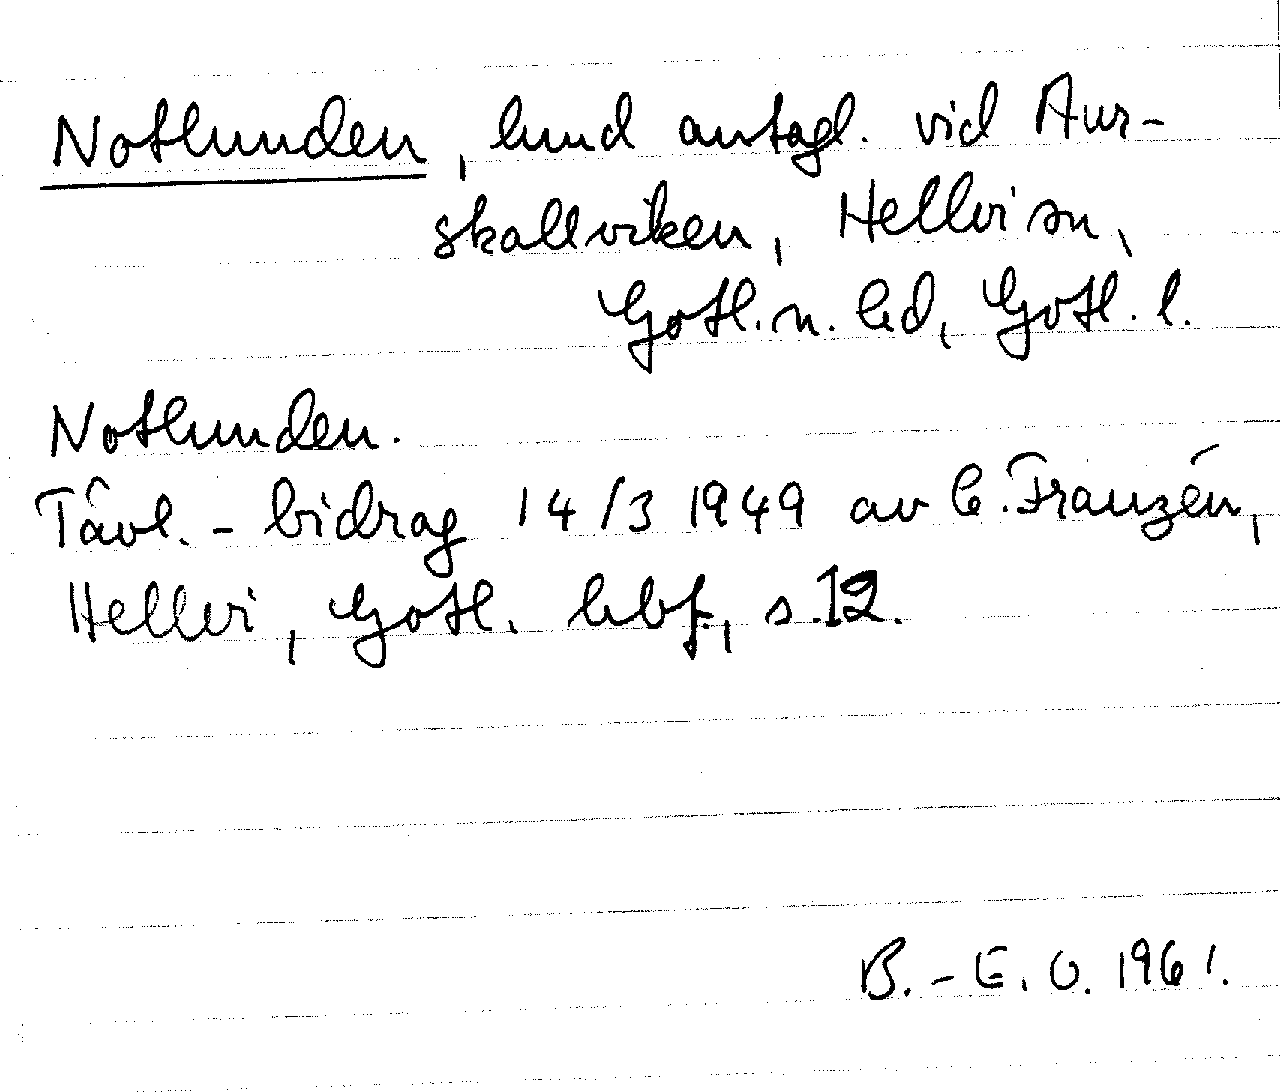 Notlunden, lund antagl. vid Aur-
skallviken, Hellvi sn,
Gotl. n. hd, Gotl. l.
Notlunden.
Tävl. - bidrag 14/3 1949 av C. Franzén,
Hellvi, Gotl. hbf., s. 12.
B.-E. O. 1961.